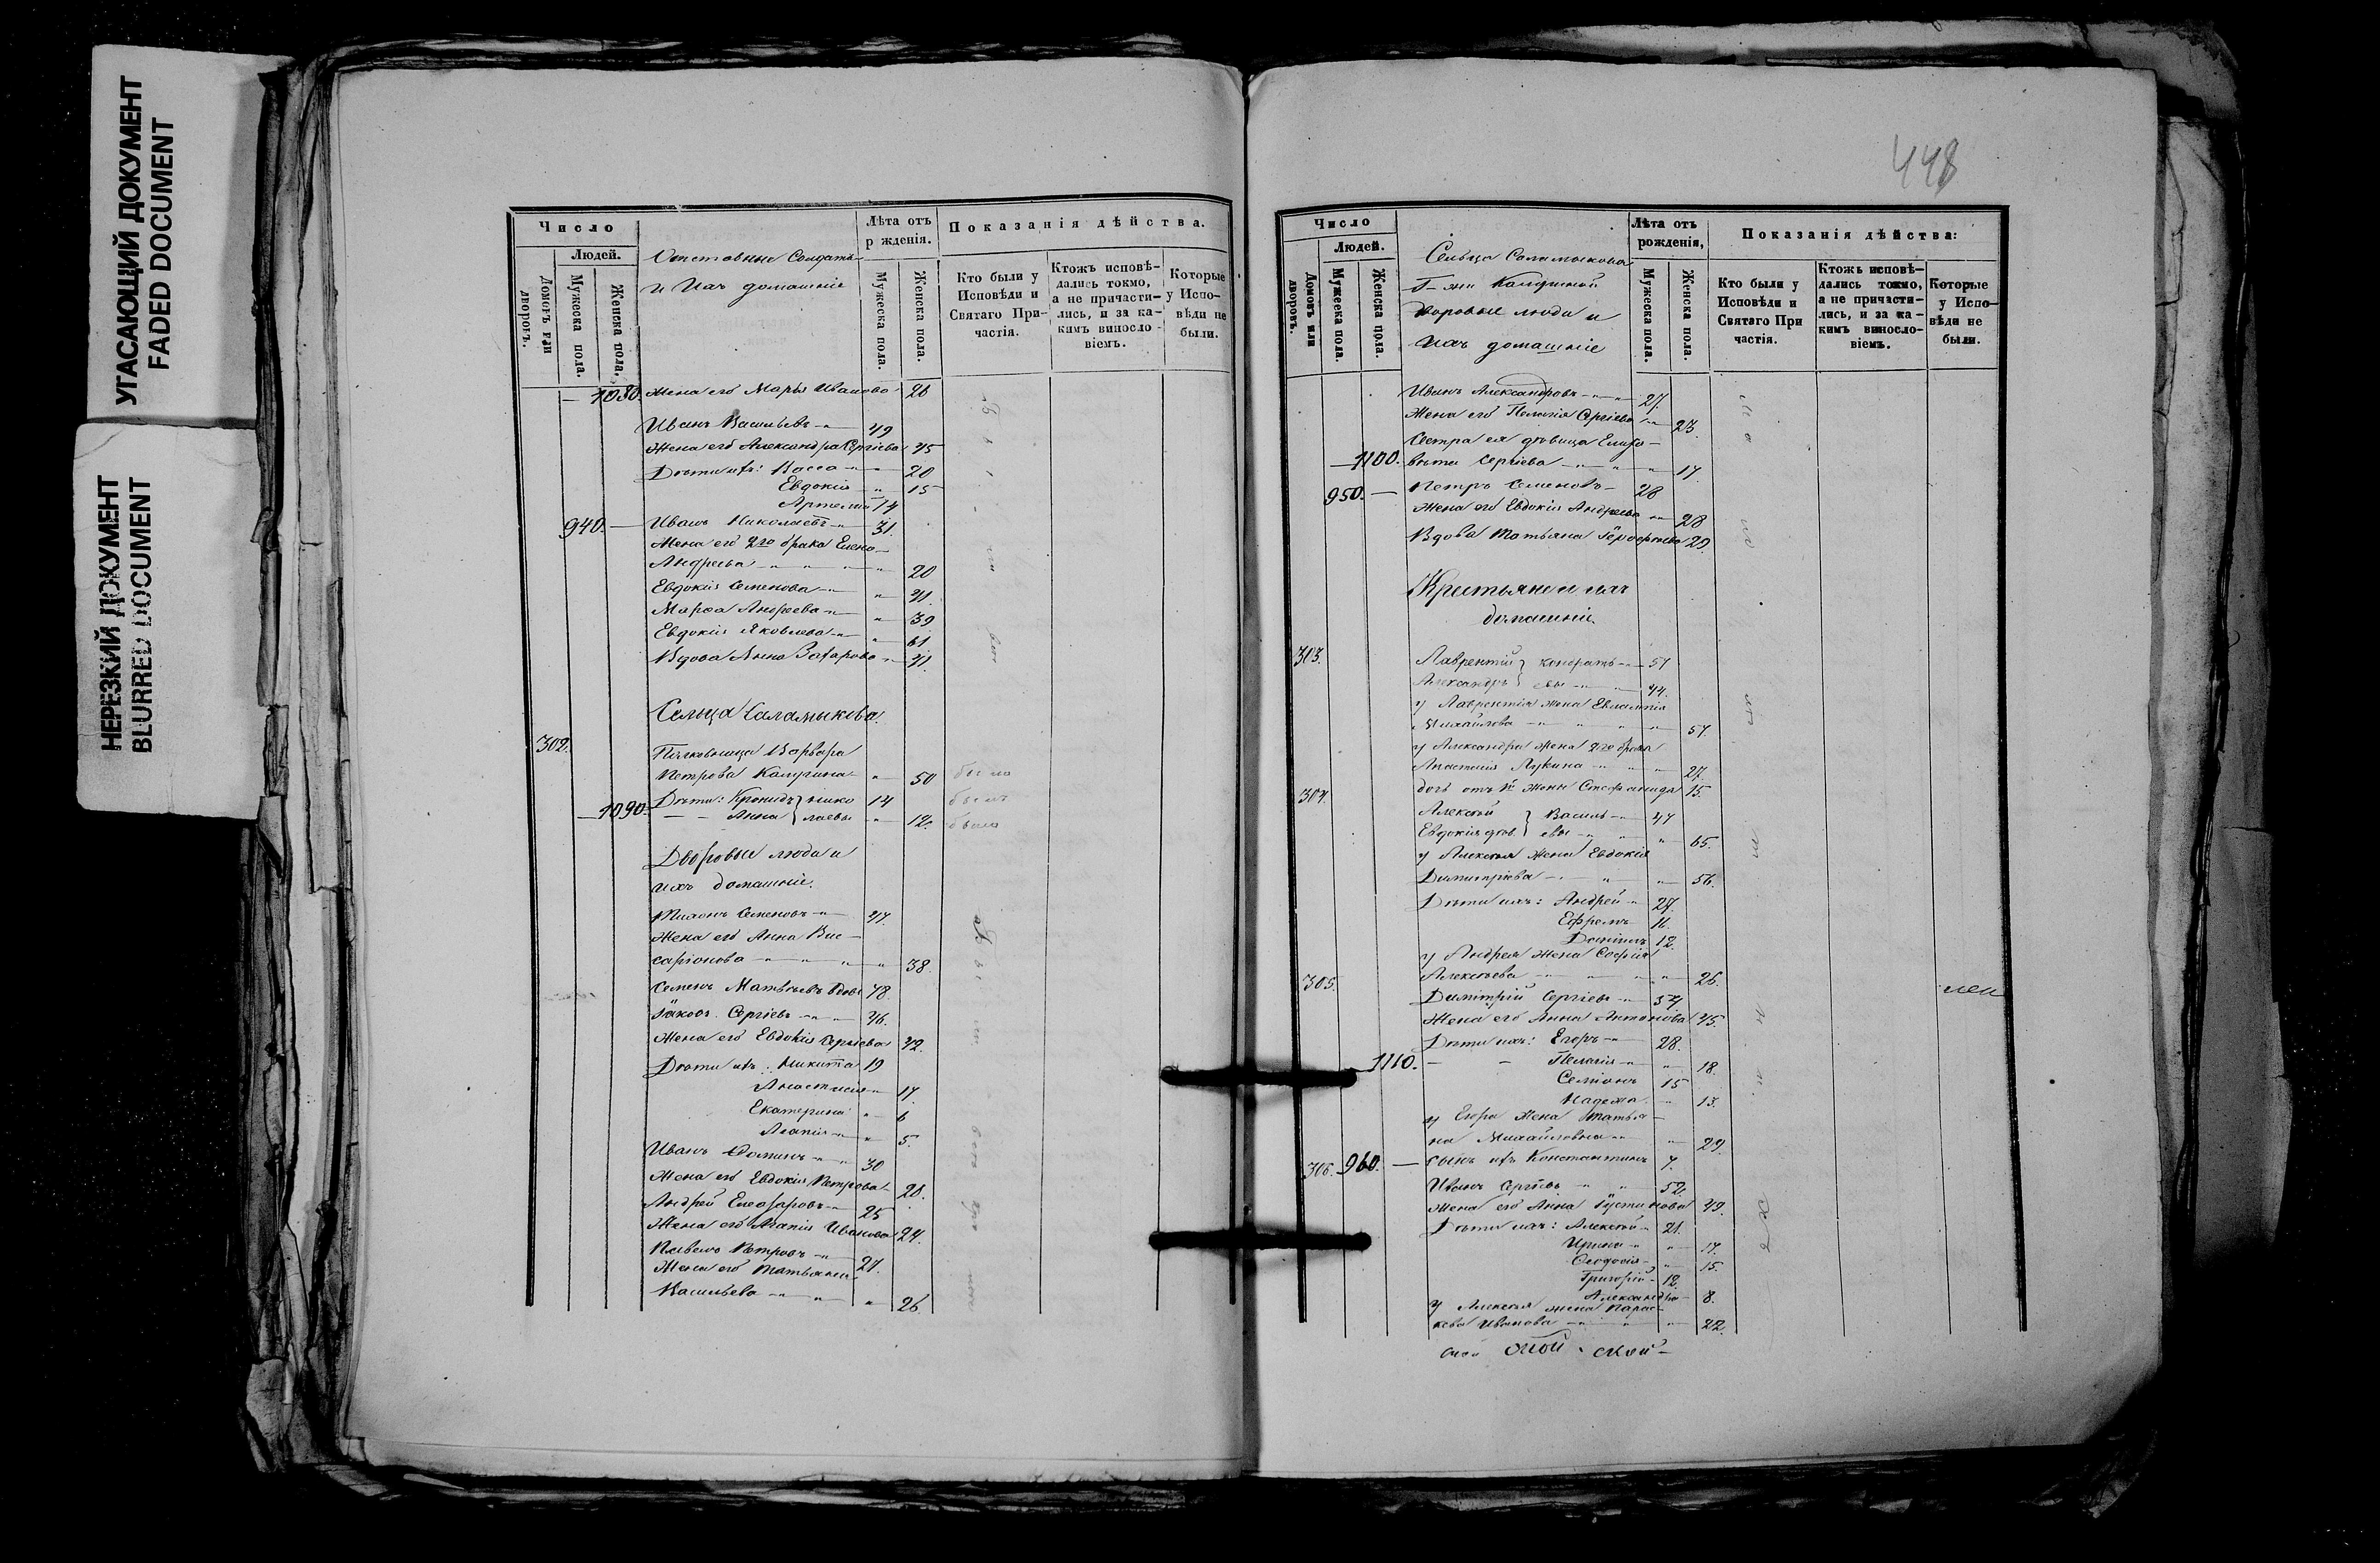 УГАСАЮЩИЙ ДОКУМЕНТ
FADED DOCUMENT
НЕРЕЗКИЙ ДОКУМЕНТ
BLURRED DOCUMENT
Число
Людей.
Домовъ или дворовъ.
Мужеска пола.
Женска пола.
Отставные Солдаты
и Ихъ домашніе
Лѣта отъ
р жденія.
Мужеска пола.
Женска пола.
Показанія дѣйства.
Кто были у
Исповѣди и
Святаго При-
частія.
Ктожъ исповѣ-
дались токмо,
а не причасти-
лись, и за ка-
кимъ виносло-
віемъ.
Которые
у Испо-
вѣди не
были.
1080. Жена его Марья Иванова 26
Иванъ Васильевъ 49
Жена его Александра Сергіева 45
Дѣти ихъ: Васса 20
Евдокія 15
Артемій 14
940. Иванъ Николаевъ 31.
Жена его 2го брака Елена
Андреева 20
Евдокія Семенова 41.
Марѳа Андреева 39
Евдокія Яковлева 61
Вдова Анна Захарова 41.
Сельца Саламыкова.
302.
Полковница Варвара
Петрова Калугина 50 была
Дѣти: Кронидъ } нико 14 былъ
1090. Анна } лаевы 12. была
Дворовые люди и
ихъ домашніе.
Тихонъ Семеновъ 47.
Жена его Анна Вис-
саріонова 38.
Семенъ Матвѣевъ вдовъ 48
Іаковъ Сергіевъ 46.
Жена его Евдокія Сергіева 42.
Дѣти ихъ: Никита 19
Анастасія 17
Екатерина 6
Агапія 5.
Иванъ Ѳоминъ 30
Жена его Евдокія Петрова 28.
Андрей Елеазаровъ 25
Жена его Агапія Иванова 24.
Павелъ Петровъ 27.
Жена его Татьяна
Васильева 26.
448
Число
Людей.
Домовъ или дворовъ.
Мужеска пола.
Женска пола.
Сельца Саламыкова
Г-жи Калугиной
дворовые люди и
Ихъ домашніе
Лѣта отъ
рожденія,
Мужеска пола.
Женска пола.
Показанія дѣйства:
Кто были у
Исповѣди и
Святаго При
частія.
Ктожъ исповѣ-
дались токмо,
а не причасти-
лись, и за ка-
кимъ виносло-
віемъ.
Которые
у Испо-
вѣди не
были.
Иванъ Александровъ 27.
Жена его Пелагія Сергіева 23.
Сестра ея дѣвица Елиза-
1100. вета Сергіева 17.
950. Петръ Семеновъ 28
Жена его Евдокія Андреева 28
Вдова Татьяна 29.
Крестьяне и ихъ
домашніе
303. Лаврентій } кондрать 51
Александръ } евы 44.
у Лаврентія жена Евлампія
Михайлова 57.
у Александра жена 2го брака
Анастасія Лукина 27.
дочь отъ 1й жены Стефанида 15.
304.
Алексѣй } Василь 47
Евдокія дѣв. } евы 65.
у Алексѣя жена Евдокія
Димитріева 56.
Дѣти ихъ: Андрей 27.
Ефремъ 16.
Даніилъ 12.
у Андрея жена Софія
Алексѣева 26.
305.
Димитрій Сергіевъ 54
Жена его Анна Антонова 45.
Дѣти ихъ: Егоръ 28.
1110. Пелагія 18.
Семіонъ 15
Надежда 13.
у Егора жена Татья-
на Михайловна 29.
306. 960. сынъ ихъ Константинъ 7.
Иванъ Сергѣевъ 52.
Жена его Анна Іустинова 49.
Дѣти ихъ: Алексѣй 21.
Ирина 17.
Ѳеодосія 15.
Григорій 12.
Александра 8.
у Алексѣя жена Парас-
кева Иванова 22.